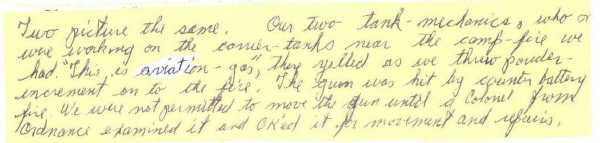 Two picture the same. Our two tank-mechanics, who
were working on the carrier-tanks near the camp-fire we
had. "This is aviation-gas", they yelled as we threw powder-
increment on to the fire. The gun was hit by counter battery
fire. We were not permitted to move the gun until a Colonel from
Ordnance examined it and OK'ed it for movement and repairs.